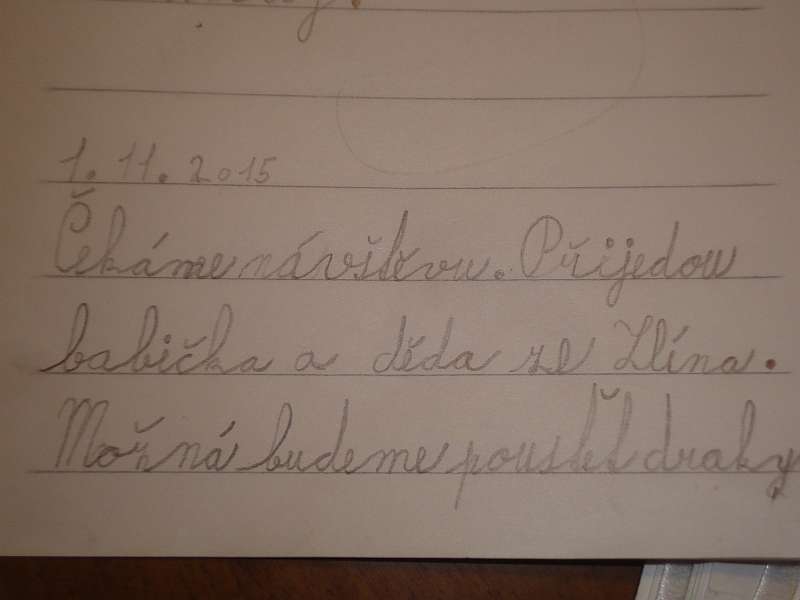 1. 11. 2015
Čekáme návštěvu. Přijedou
babička a děda ze Zlína.
Možná budeme draky